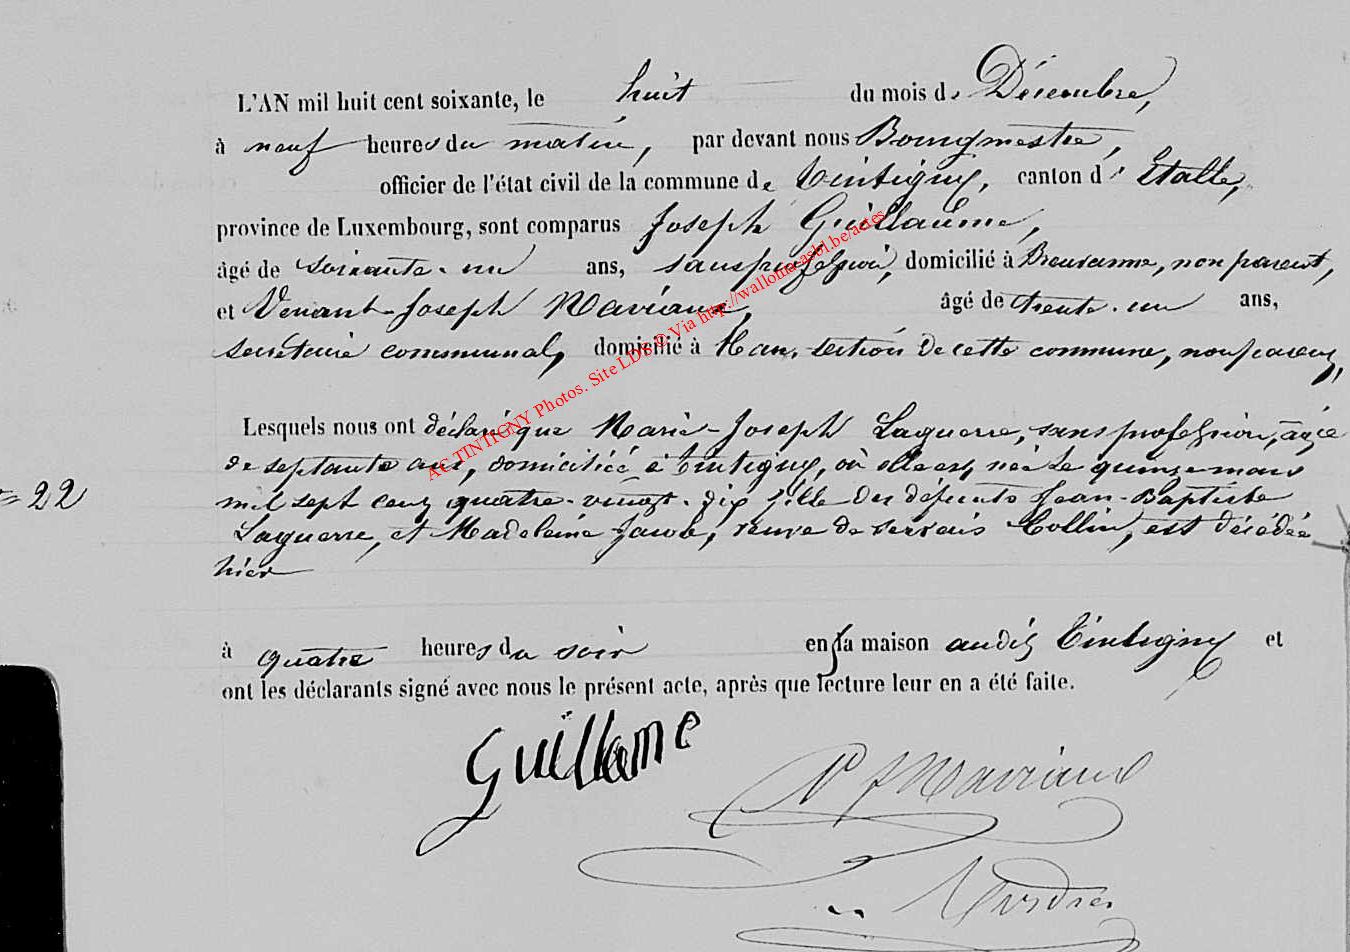 L'AN mil huit cent soixante, le huit du mois de Décembre,
à neuf heures du matin, par devant nous Bourgmestre,
officier de l'état civil de la commune de Tintigny, canton d' Etalle,
province de Luxembourg, sont comparus Joseph Guillaume,
âgé de soixante-un ans, sans profession, domicilié à Breuvanne, non parent,
et Venant-Joseph Maviaux, âgé de trente-un ans,
secrétaire communal, domicilié à Han, section de cette commune, non parent,
Lesquels nous ont déclaré que Marie-Joseph Laguerre, sans profession, âgée
de septante ans, domiciliée à Tintigny, où elle est née le quinze mars
= 22
mil sept cent quatre-vingt-dix fille des défunts Jean-Baptiste
Laguerre, et Madeleine Jacob, veuve de Servais Collin, est décédée
hier
à quatre heures du soir en sa maison audit Tintigny et
ont les déclarants signé avec nous le présent acte, après que lecture leur en a été faite.
Guillame
VJMaviaux
AC TINTIGNY Photos. Site LDS © Via http://wallonia-asbl.be/actes